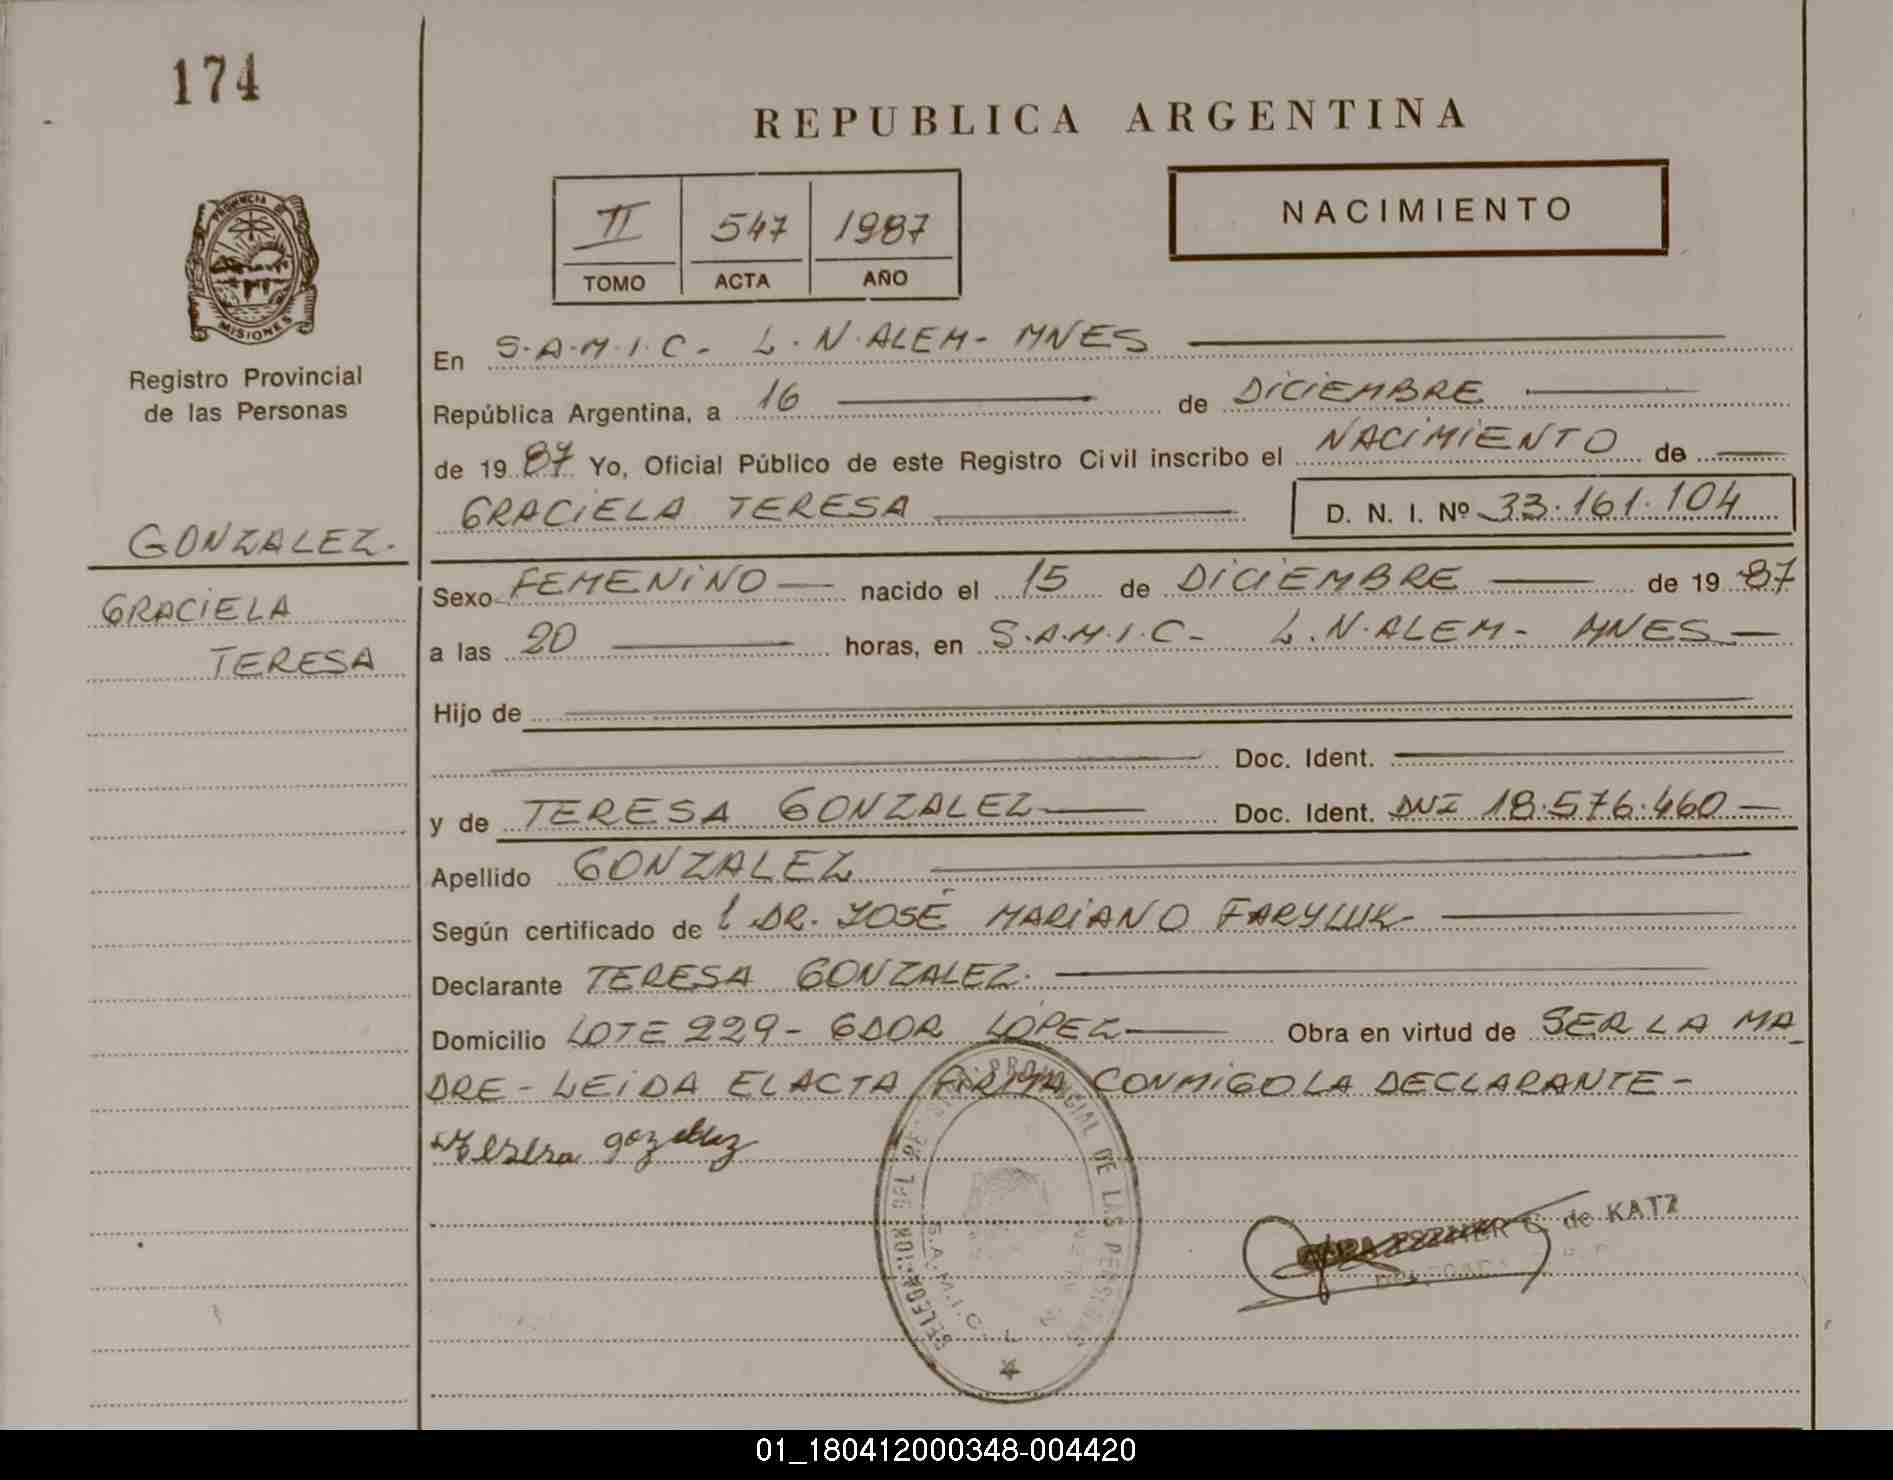 174
REPUBLICA ARGENTINA
II 547 1987
TOMO ACTA AÑO
NACIMIENTO
PROVINCIA DE
MISIONES
Registro Provincial
de las Personas
GONZALEZ.
GRACIELA
TERESA
En S.A.M.I.C. - L.N.ALEM - MNES
República Argentina, a 16 de DICIEMBRE
de 1987 Yo, Oficial Público de este Registro Civil inscribo el NACIMIENTO de
GRACIELA TERESA D. N. I. Nº 33.161.104
Sexo FEMENINO nacido el 15 de DICIEMBRE de 1987
a las 20 horas, en S.A.M.I.C - L.N.ALEM - MNES
Hijo de
Doc. Ident.
y de TERESA GONZALEZ Doc. Ident. DNI 18.576.460
Apellido GONZALEZ
Según certificado de l DR. JOSÉ MARIANO FARYLUK
Declarante TERESA GONZALEZ.
Domicilio LOTE 229 - GDOR LOPEZ Obra en virtud de SER LA MA
DRE - LEIDA EL ACTA FIRMA CONMIGO LA DECLARANTE -
DELEGACION DEL REGISTRO PROVINCIAL DE LAS PERSONAS
S.A.M.I.C. L N
de KATZ
01_180412000348-004420